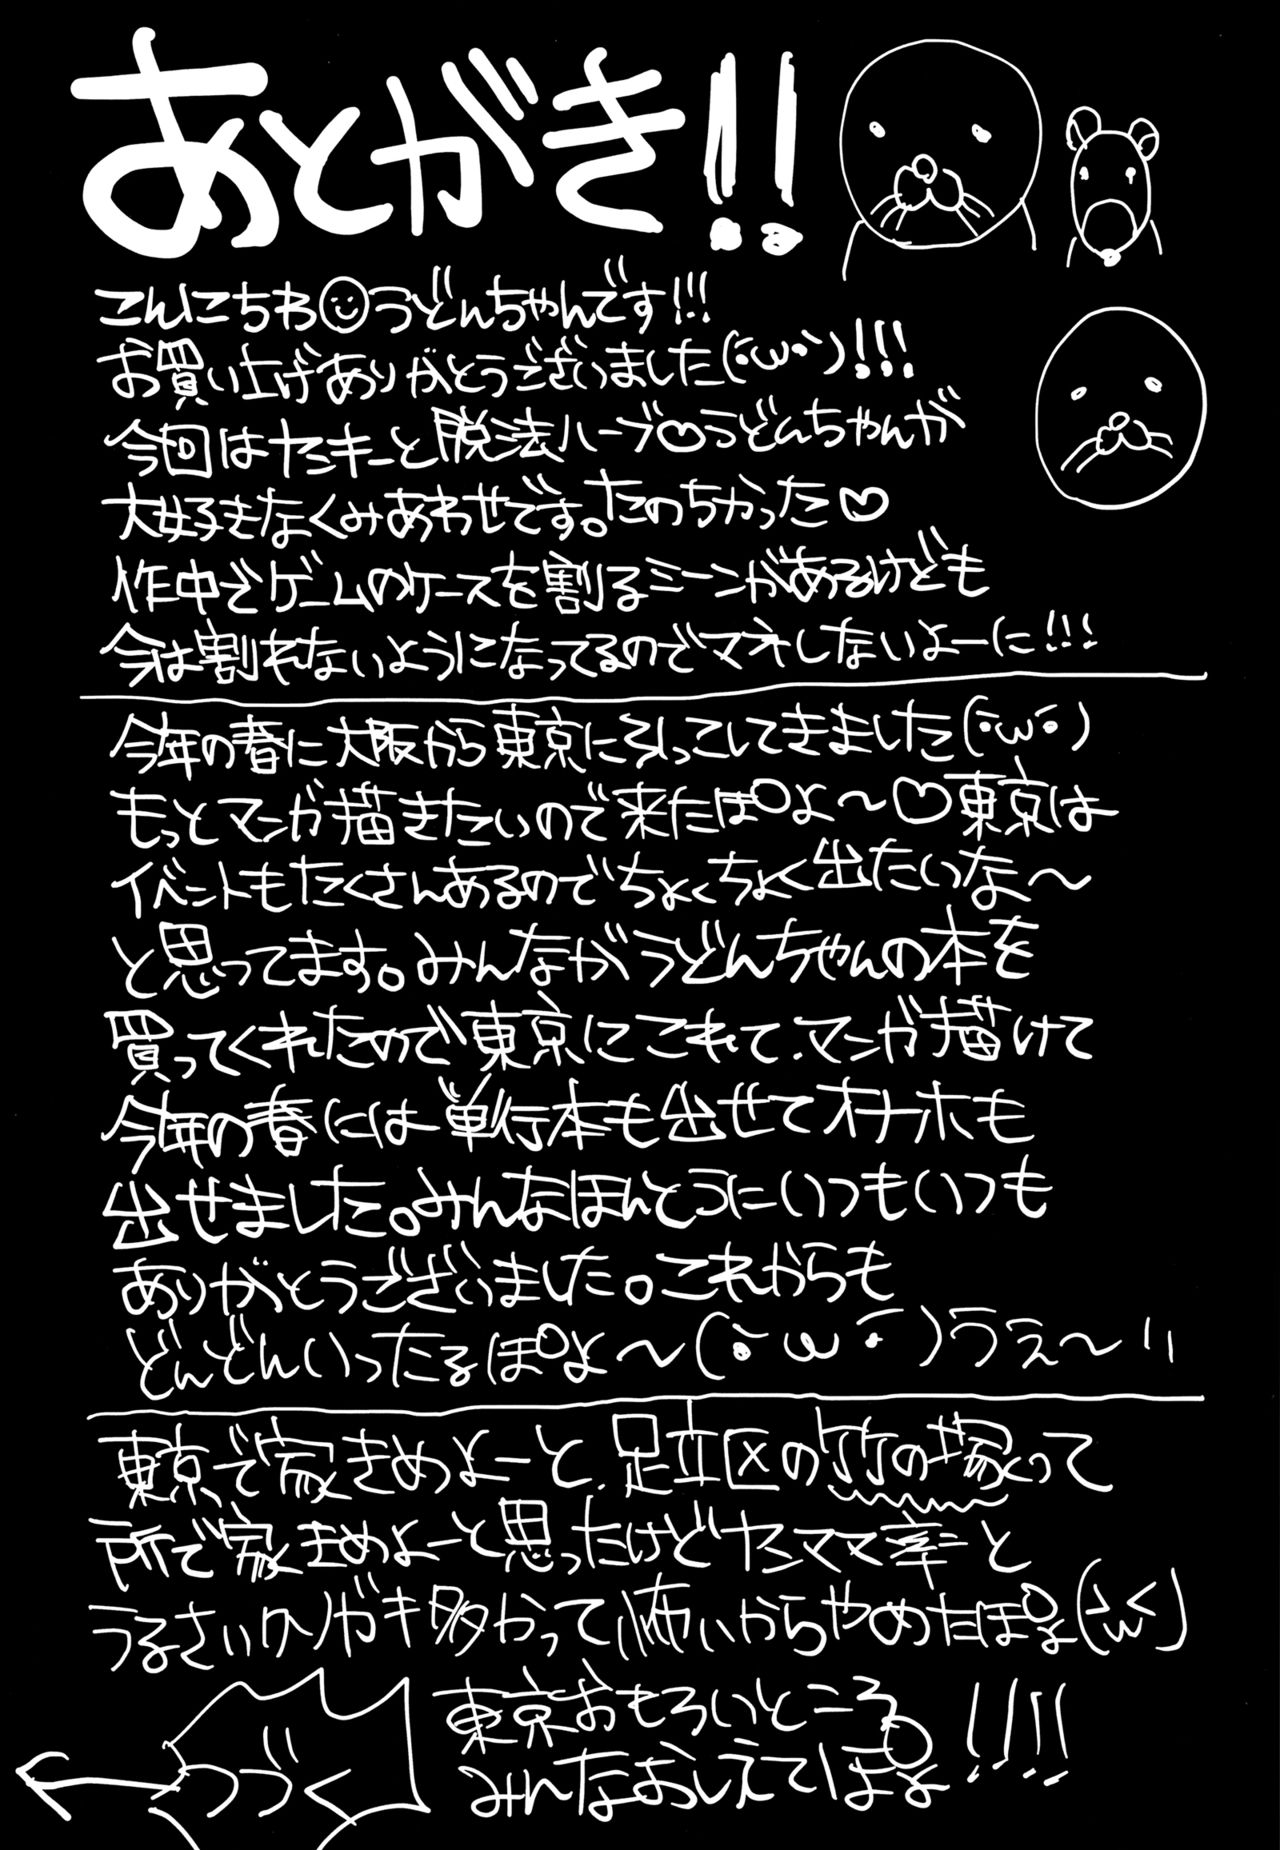 あとがき!!
こんにちわ☺うどんちゃんです!!!
お買い上げありがとうございました(´・ω・`)!!!
今回はヤンキーと脱法ハーブ♡うどんちゃんが
大好きなくみあわせです。たのちかった♡
作中でゲームのケースを割るシーンがあるけども
今は割れないようになってるのでマネしないよーに!!!
今年の春に大阪から東京に引っこしてきました(´・ω・`)
もっとマンガ描きたいので来たぽよ〜♡東京は
イベントもたくさんあるのでちょくちょく出たいな〜
と思ってます。みんながうどんちゃんの本を
買ってくれたので東京にこれて、マンガ描けて
今年の春には単行本も出せてオナホも
出せました。みんなほんとうにいつもいつも
ありがとうございました。これからも
どんどんいったるぽよ〜(´・ω・`)うぇ〜い
東京で家きめよーと、足立区の竹の塚って
所で家きめよーと思ったけどヤンママ率と
うるさいクソガキ多かって怖いからやめたぽよ(´ω`)
東京おもろいところ!!!!
みんなおしえてぽよ
つづく